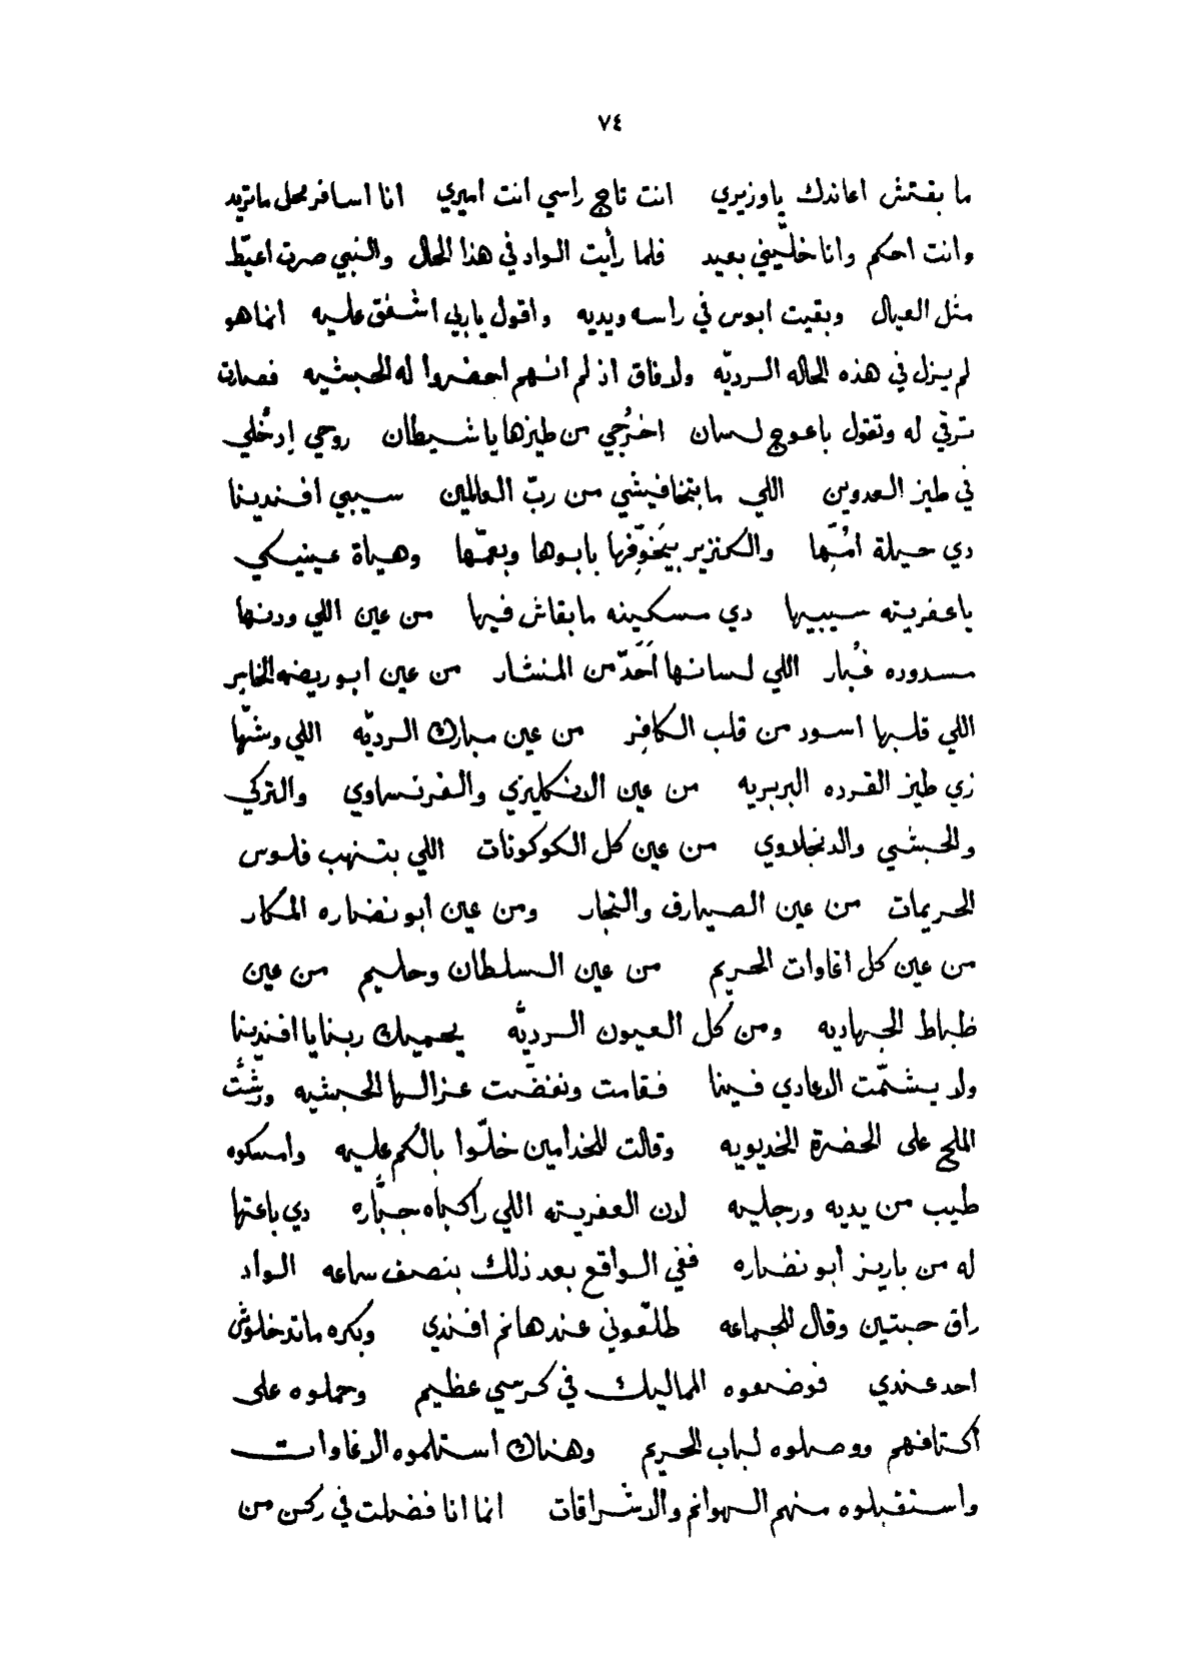 ٧٤
ما بقتش اعاندك ياوزيري انت تاج راسي انت اميري انا اسافر محل ماتريد
وانت احكم وانا خلّيني بعيد فلما رأيت الواد في هذا الحال والنبي صرت اعيّط
مثل العيال وبقيت ابوس في راسه ويديه واقول ياربي اشفق عليه انما هو
لم يزل في هذه الحاله الرديّه ولا فاق اذ لم انهم احضروا له الحبشيه فصارت
ترقي له وتقول باعوج لسان اخرُجي من طيزها يا شيطان روحي إدخُلي
في طيز العدوين اللي ما بتخافيشي من ربّ العالمين سيبي افندينا
دي حيلة امُّها والكنزير بيَخوِّفها بابوها وبعمّها وحياة عينيكي
ياعفريته سيبيها دي مسكينه مابقاش فيها من عين اللي ودنها
مسدوده غُبار اللي لسانها اَحَدّ من المنشار من عين ابو ريضه الخابر
اللي قلبها اسود من قلب الكافِر من عين مبارك الرديّه اللي وشّها
زي طيز القرده البربريه من عين الانكليزي والفرنساوي والتركي
والحبشي والدنجلاوي من عين كل الكوكونات اللي بتنهب فلوس
الحريمات من عين الصيارف والتجار ومن عين ابو نضاره المكار
من عين كل اغاوات الحريم من عين السلطان وحليم من عين
ظباط الجهاديه ومن كل العيون الرديُّه يحميك ربنا يا افنديّنا
ولا يشمّت الاعادي فينا فقامت ونفضّت عزالها الحبشيه ورشُّت
الملح على الحضرة الخديويه وقالت للخدامين خلّوا بالكم عليه وامسكوه
طيب من يديه ورجليه لان العفريته اللي راكباه جبَّاره دي باعتها
له من باريز أبو نضاره ففي الواقع بعد ذلك بنصف ساعه الواد
راق حبتين وقال للجماعه طلّعوني عند هانم افندي وبكره ماتدخلوش
احد عندي فوضعوه المماليك في كرسي عظيم وحملوه على
أكتافهم ووصلوه لباب الحريم وهناك استلموه الاغاوات
واستقبلوه منهم الهوانم والاشراقات انما انا فضلت في ركن من